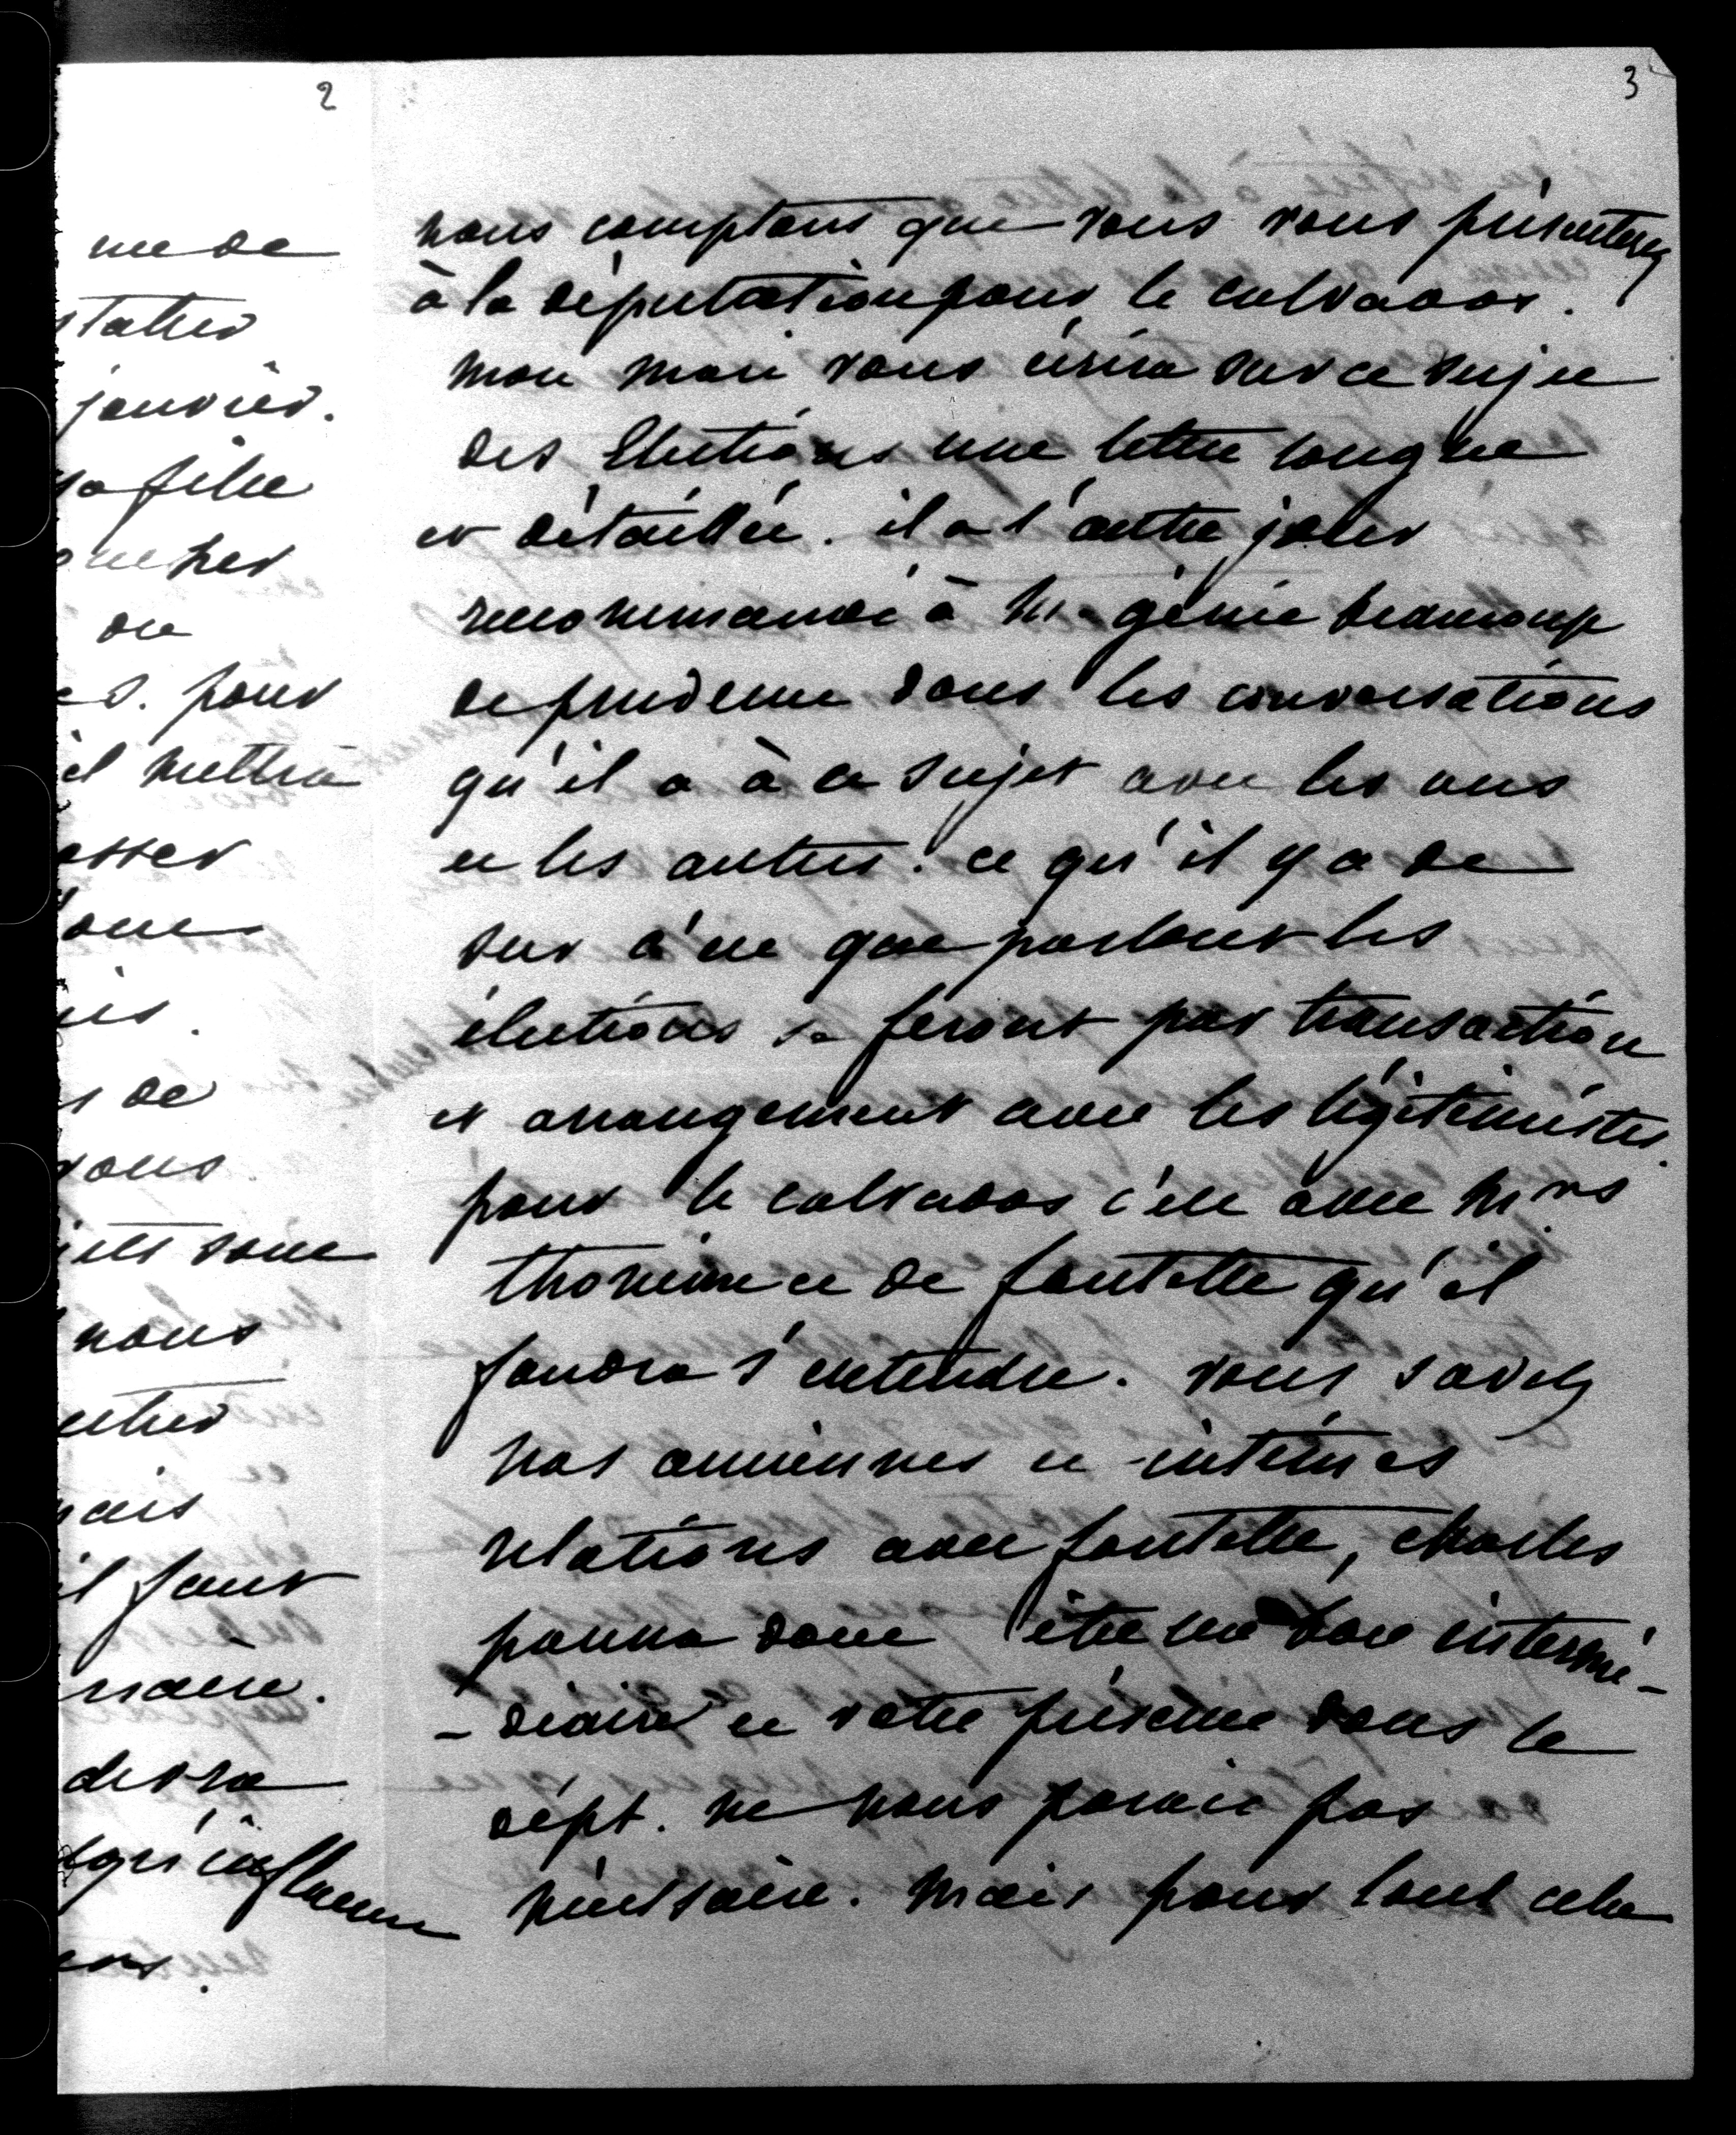 2
me de
janvier.
sa fille
de
pour
il mettra
de
vous
sont
nous
mais
il faut
devra
influence
3
nous comptons que vous vous présenterez
à la députation pour le calvados.
mon mari vous écrira sur ce sujet
des Elections une lettre longue
et détaillée. il a l'autre jour
recommandé à M. génie beaucoup
de prudence dans les conversations
qu'il a à ce sujet avec les uns
et les autres. ce qu'il y a de
sur c'est que partout les
élections se feront par transaction
et arrangement avec les légitimistes.
pour le calvados c'est avec Mrs
thomine et de fontette qu'il
faudra s'entendre. vous savez
nos anciennes et intimes
relations avec fontette, charles
pourra donc être un bon intermé-
-diaire et votre présence dans le
dépt. ne nous parait pas
nécessaire. Mais pour tout cela